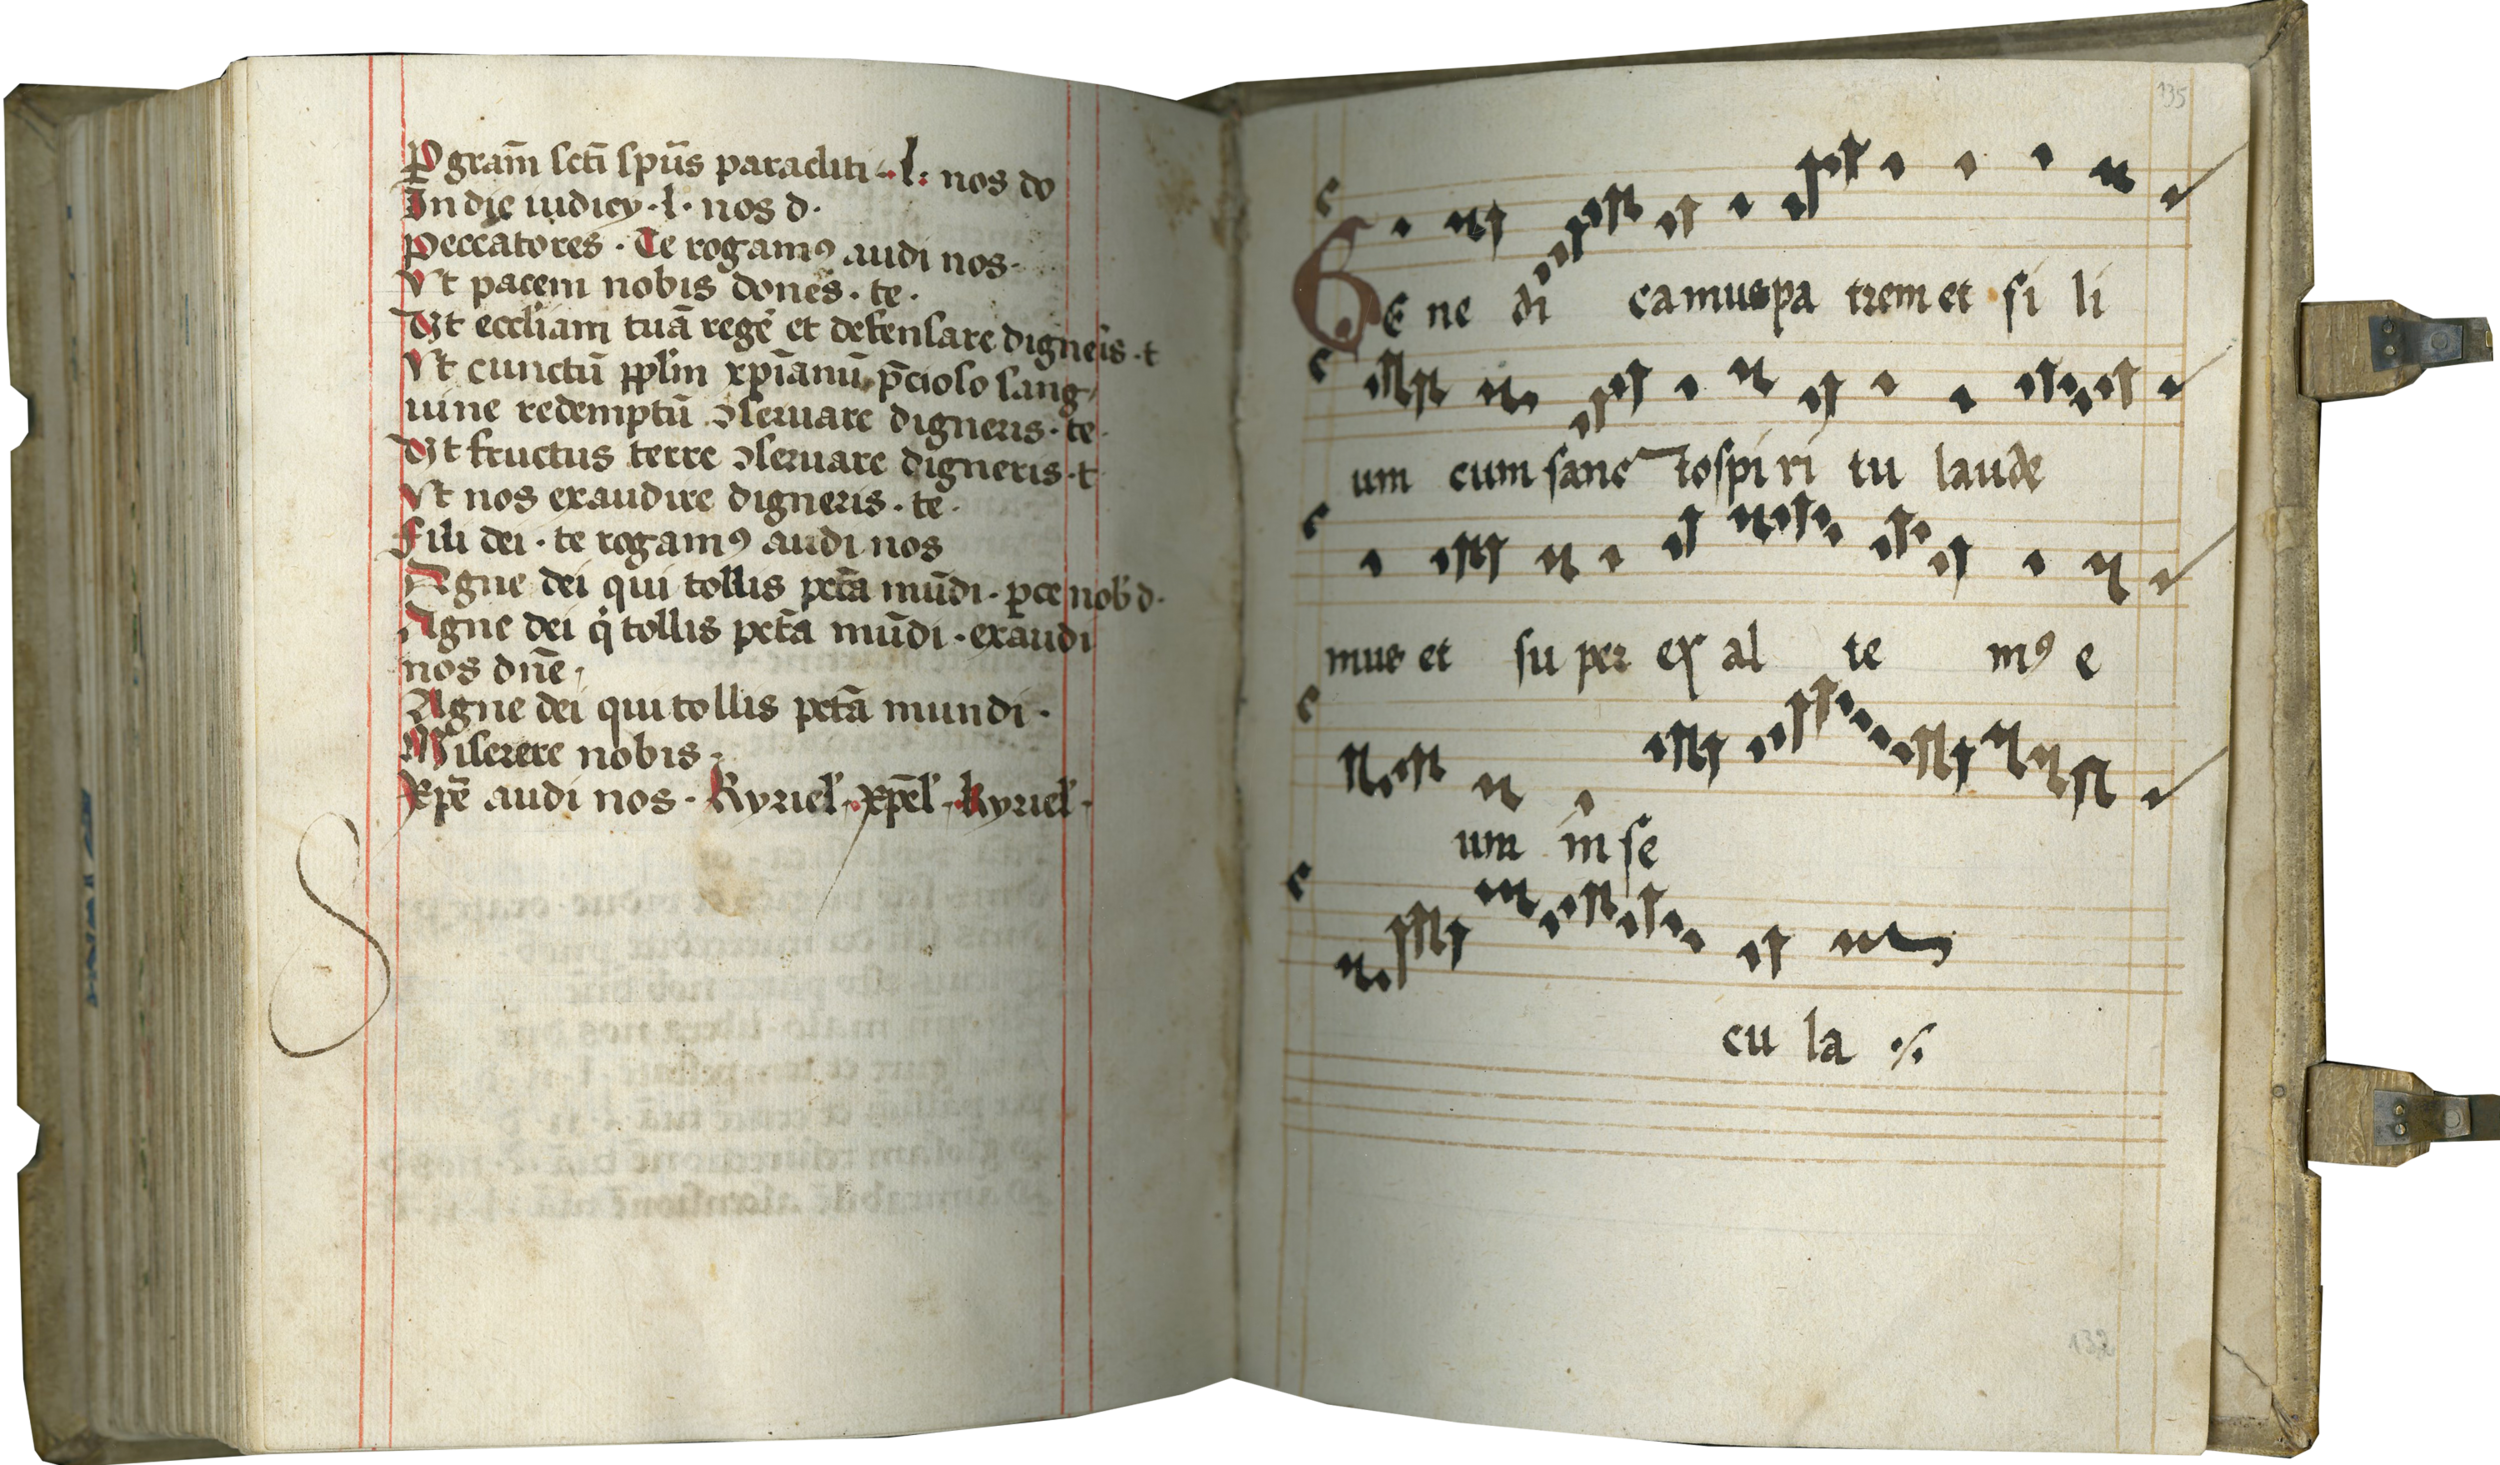 P gram̄ sctī spūs paracliti · l: nos do
In die iudicy · l · nos d ·
Peccatores · Te rogamꝯ audi nos ·
Vt pacem nobis dones · te ·
Vt eccliam tuā regē et defensare digneris · t
Vt cunctū pplm xp̄ianū p̄cioso sang
uine redemptū ɔseruare digneris · te ·
Vt fructus terre ɔseruare digneris · t
Vt nos exaudire digneris · te ·
Fili dei · te rogamꝯ audi nos
Agne dei qui tollis pctā mūdi · ꝑce nob d ·
Agne dei q̇ tollis pctā mūdi · exaudi
nos dn̄e
Agne dei qui tollis pctā mundi ·
Miserere nobis
Xpē audi nos · Kyriel · xp̄el · kyriel ·
135
BE ne di camus pa trem et fi li
um cum sanc to spi ri tu laude
mus et su per ex al te mꝯ e
um in se
cu la ·/.
132